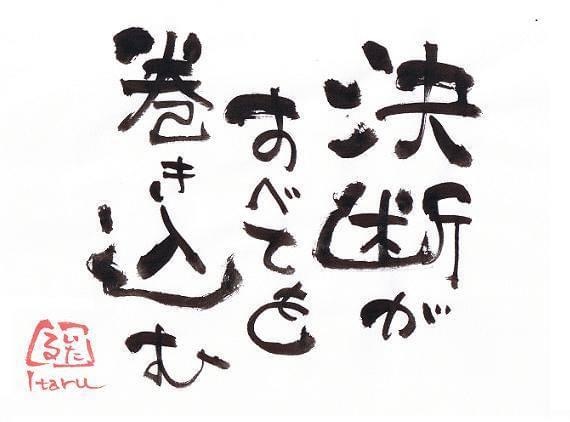 決断が
すべてを
巻き込む
いたる
Itaru